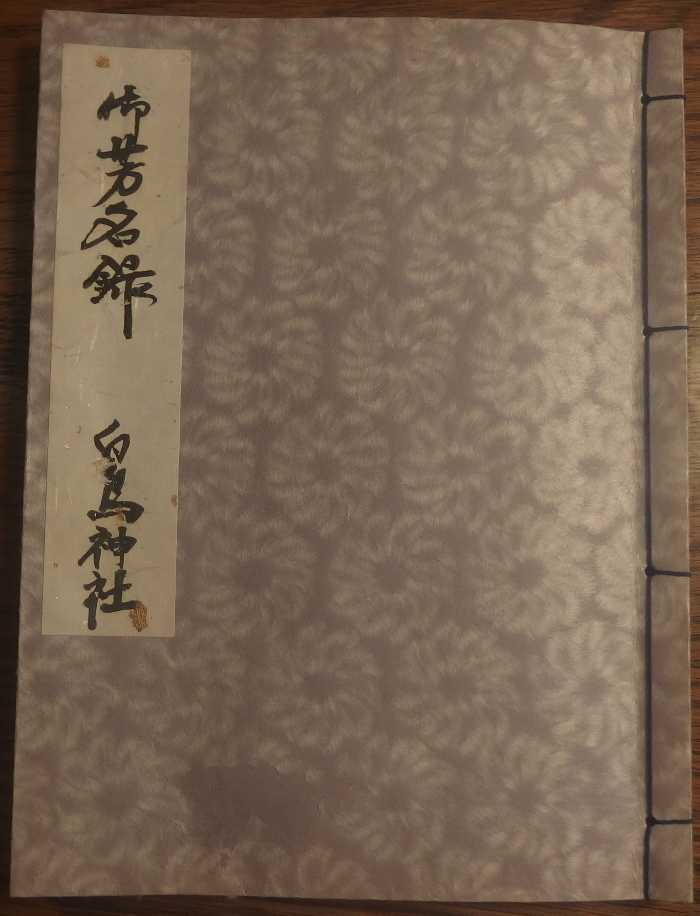 御芳名録 白鳥神社